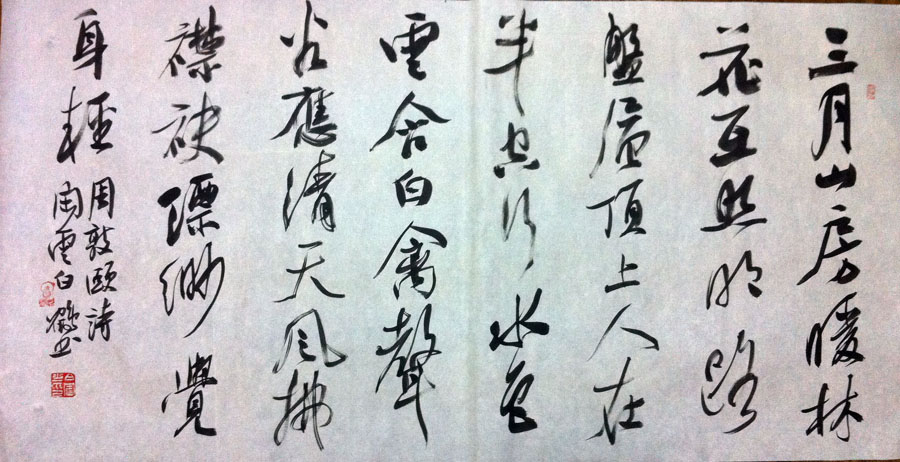 三月山房暖林
花互照明路
盤層頂上人在
半空行水色
雲含白禽聲
谷應清天風拂
襟袂縹緲覺
身輕
周敦頤詩
雲白鶴書